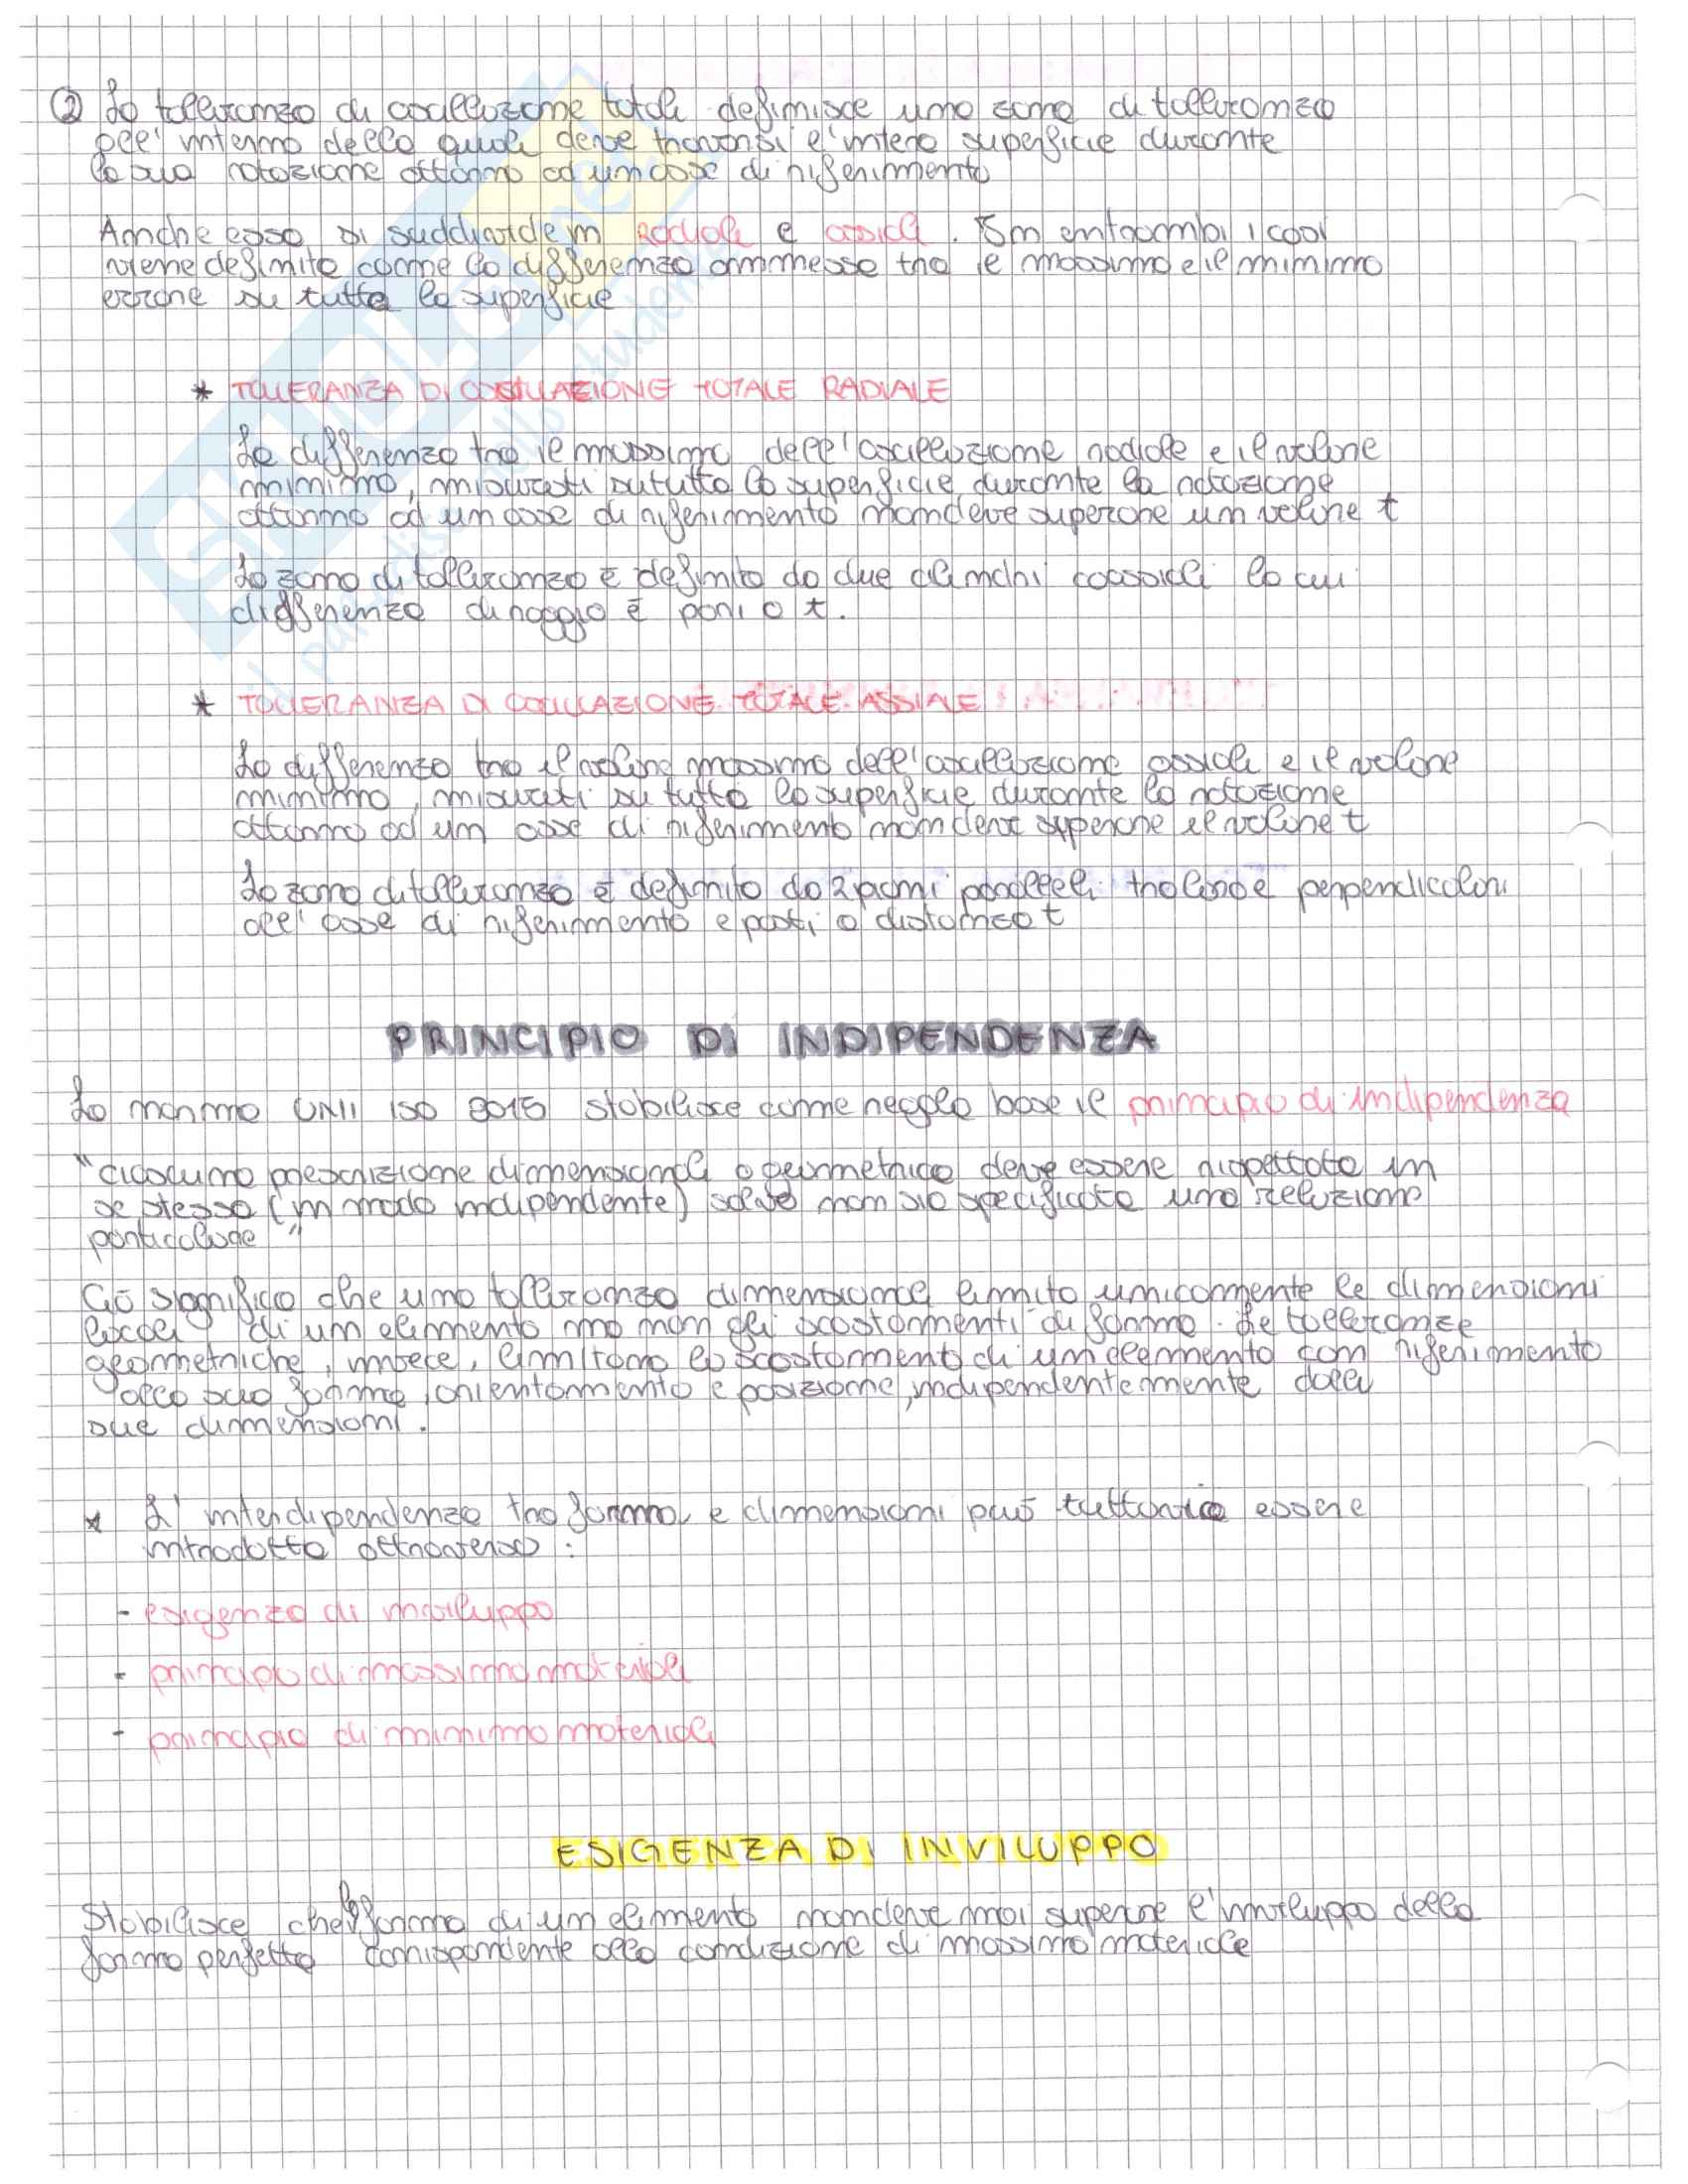 ② La tolleranza di oscillazione totale definisce una zona di tolleranza
all'interno della quale deve trovarsi l'intera superficie durante
la sua rotazione attorno ad un asse di riferimento
Anche essa si suddivide in radiale e assiale. In entrambi i casi
viene definita come la differenza ammessa tra il massimo e il minimo
errore su tutta la superficie
* TOLLERANZA DI OSCILLAZIONE TOTALE RADIALE
La differenza tra il massimo dell'oscillazione radiale e il valore
minimo, misurati su tutta la superficie durante la rotazione
attorno ad un asse di riferimento non deve superare un valore t
La zona di tolleranza è definita da due cilindri coassiali la cui
differenza di raggio è pari a t.
* TOLLERANZA DI OSCILLAZIONE TOTALE ASSIALE
La differenza tra il valore massimo dell'oscillazione assiale e il valore
minimo, misurati su tutta la superficie durante la rotazione
attorno ad un asse di riferimento non deve superare il valore t
La zona di tolleranza è definita da 2 piani paralleli tra loro e perpendicolari
all'asse di riferimento e posti a distanza t
PRINCIPIO DI INDIPENDENZA
La norma UNI ISO 8015 stabilisce come regola base il principio di indipendenza
"ciascuna prescrizione dimensionale o geometrica deve essere rispettata in
se stessa (in modo indipendente) salvo non sia specificata una relazione
particolare"
Ciò significa che una tolleranza dimensionale limita unicamente le dimensioni
locali di un elemento ma non gli scostamenti di forma. Le tolleranze
geometriche, invece, limitano lo scostamento di un elemento con riferimento
alla sua forma, orientamento e posizione, indipendentemente dalle
sue dimensioni.
* L'interdipendenza tra forma e dimensioni può tuttavia essere
introdotta attraverso:
- esigenza di inviluppo
- principio di massimo materiale
- principio di minimo materiale
ESIGENZA DI INVILUPPO
Stabilisce che la forma di un elemento non deve mai superare l'inviluppo della
forma perfetta corrispondente alla condizione di massimo materiale